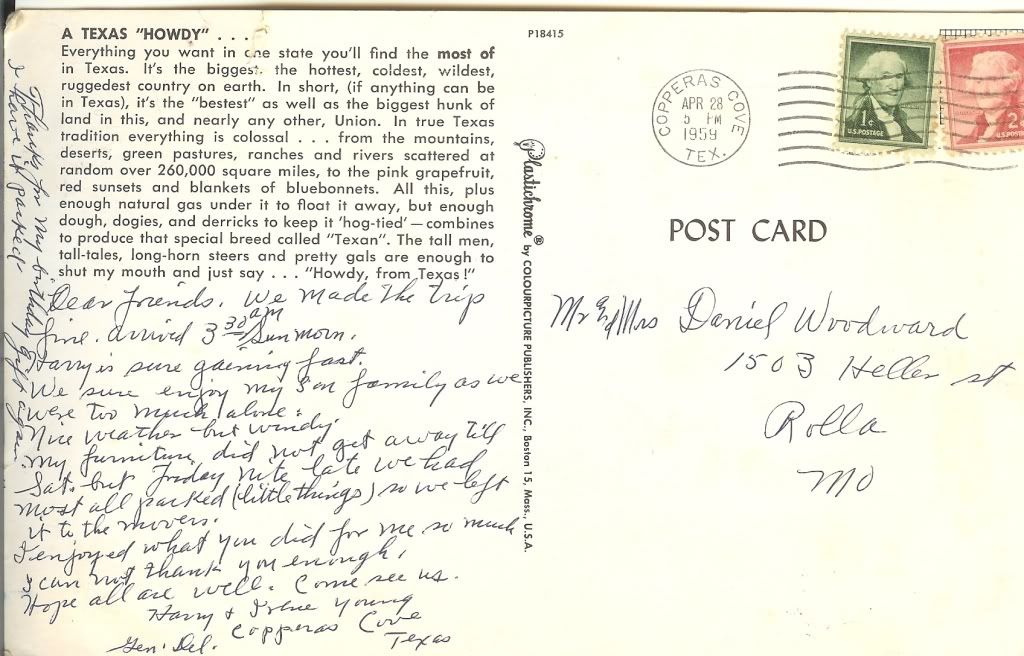 A TEXAS "HOWDY" . . .
Everything you want in one state you'll find the most of
in Texas. It's the biggest, the hottest, coldest, wildest,
ruggedest country on earth. In short, (if anything can be
in Texas), it's the "bestest" as well as the biggest hunk of
land in this, and nearly any other, Union. In true Texas
tradition everything is colossal . . . . from the mountains,
deserts, green pastures, ranches and rivers scattered at
random over 260,000 square miles, to the pink grapefruit,
red sunsets and blankets of bluebonnets. All this, plus
enough natural gas under it to float it away, but enough
dough, dogies, and derricks to keep it 'hog-tied' — combines
to produce that special breed called "Texan". The tall men,
tall-tales, long-horn steers and pretty gals are enough to
shut my mouth and just say . . . "Howdy, from Texas!"
Dear friends. We made the trip
fine. arrived 3 30 am Sun morn.
Harry is sure gaining fast.
We sure enjoy my son family as we
were too much alone.
Nice weather but windy.
My furniture did not get away till
Sat. but Friday nite late we had
most all packed (little things) so we left
it to the movers.
I enjoyed what you did for me so much
I can not thank you enough.
Hope all are well. Come see us.
Harry & Irene Young
Copperas Cove
Gen. Del. Texas
Thanks for my birthday gift again.
I have it packed.
Plastichrome ® by COLOURPICTURE PUBLISHERS, INC., Boston 15, Mass., U.S.A.
P18415
COPPERAS COVE
APR 28
5 PM
1959
TEX.
1¢
U.S. POSTAGE
2¢
U.S. POSTAGE
POST CARD
Mr & Mrs Daniel Woodward
1503 Heller st
Rolla
Mo